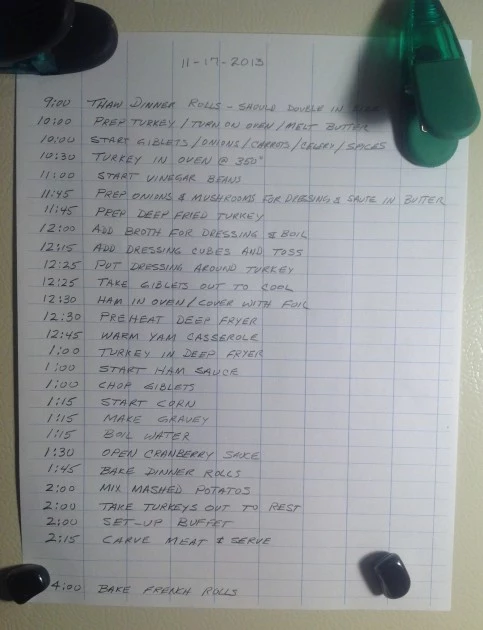 11-17-2013
9:00 THAW DINNER ROLLS - SHOULD DOUBLE IN SIZE
10:00 PREP TURKEY / TURN ON OVEN / MELT BUTTER
10:00 START GIBLETS / ONIONS / CARROTS / CELERY / SPICES
10:30 TURKEY IN OVEN @ 350°
11:00 START VINEGAR BEANS
11:45 PREP ONIONS & MUSHROOMS FOR DRESSING & SAUTE IN BUTTER
11:45 PREP DEEP FRIED TURKEY
12:00 ADD BROTH FOR DRESSING & BOIL
12:15 ADD DRESSING CUBES AND TOSS
12:25 PUT DRESSING AROUND TURKEY
12:25 TAKE GIBLETS OUT TO COOL
12:30 HAM IN OVEN / COVER WITH FOIL
12:30 PREHEAT DEEP FRYER
12:45 WARM YAM CASSEROLE
1:00 TURKEY IN DEEP FRYER
1:00 START HAM SAUCE
1:00 CHOP GIBLETS
1:15 START CORN
1:15 MAKE GRAVEY
1:15 BOIL WATER
1:30 OPEN CRANBERRY SAUCE
1:45 BAKE DINNER ROLLS
2:00 MIX MASHED POTATOS
2:00 TAKE TURKEYS OUT TO REST
2:00 SET-UP BUFFET
2:15 CARVE MEAT & SERVE
4:00 BAKE FRENCH ROLLS